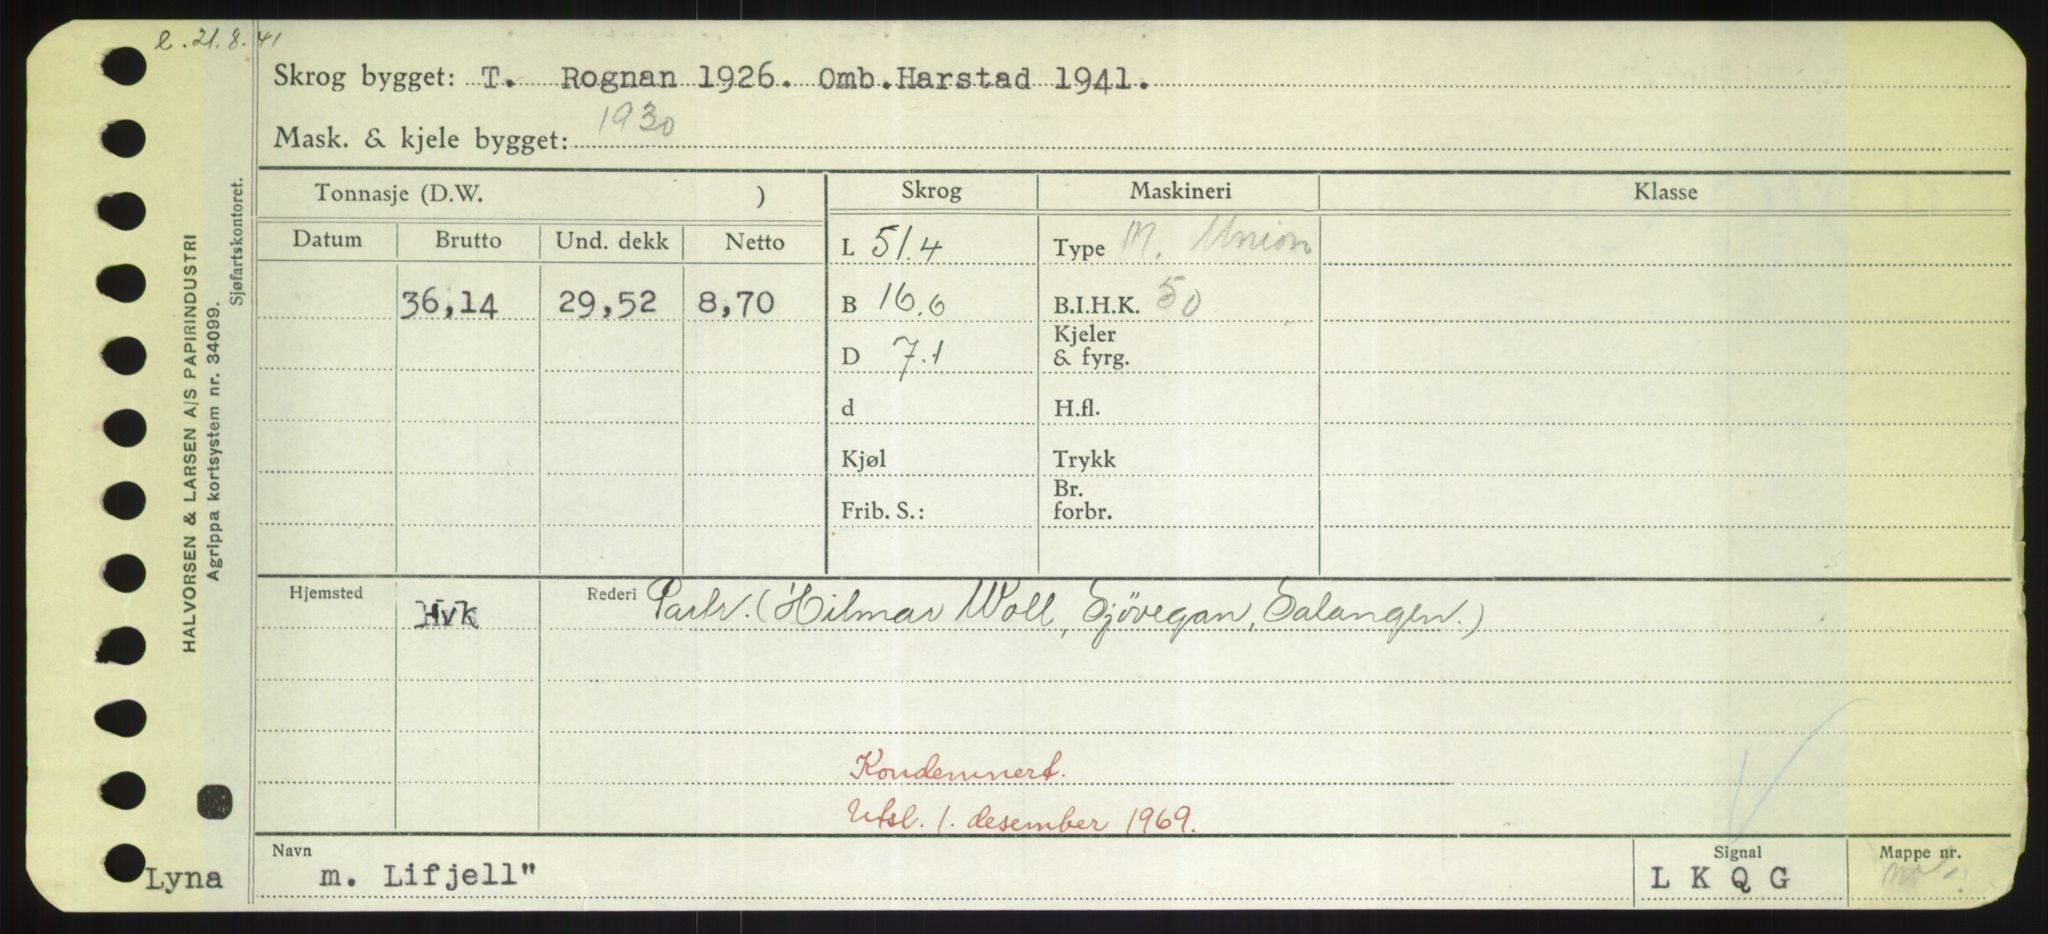 e. 21.8.41
Skrog bygget: T. Rognan 1926. Omb.Harstad 1941.
Mask. & kjele bygget: 1930
Tonnasje (D.W. ) Skrog Maskineri Klasse
Datum Brutto Und. dekk Netto L 51.4 Type M. Union
36,14 29,52 8,70 B 16.6 B.I.H.K. 50
D 7.1 Kjeler & fyrg.
d H.fl.
Kjøl Trykk
Frib. S.: Br. forbr.
Hjemsted Hvk Rederi Partr. (Hilmar Woll, Sjövegan, Salangen.)
Kondemnert.
Utsl. 1. desember 1969.
Navn Signal Mappe nr.
Lyna m. Lifjell" L K Q G
HALVORSEN & LARSEN A/S PAPIRINDUSTRI
Agrippa kortsystem nr. 34099.
Sjøfartskontoret.